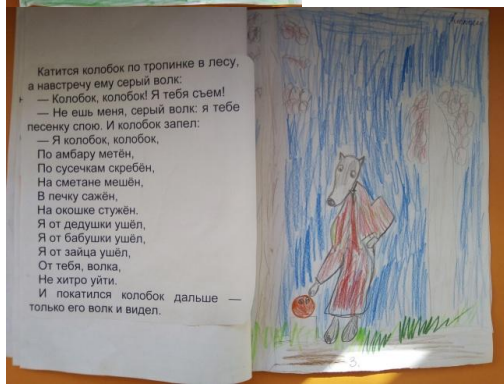 Катится колобок по тропинке в лесу,
а навстречу ему серый волк:
— Колобок, колобок! Я тебя съем!
— Не ешь меня, серый волк: я тебе
песенку спою. И колобок запел:
— Я колобок, колобок,
По амбару метён,
По сусечкам скребён,
На сметане мешён,
В печку сажён,
На окошке стужён.
Я от дедушки ушёл,
Я от бабушки ушёл,
Я от зайца ушёл,
От тебя, волка,
Не хитро уйти.
И покатился колобок дальше —
только его волк и видел.
3.